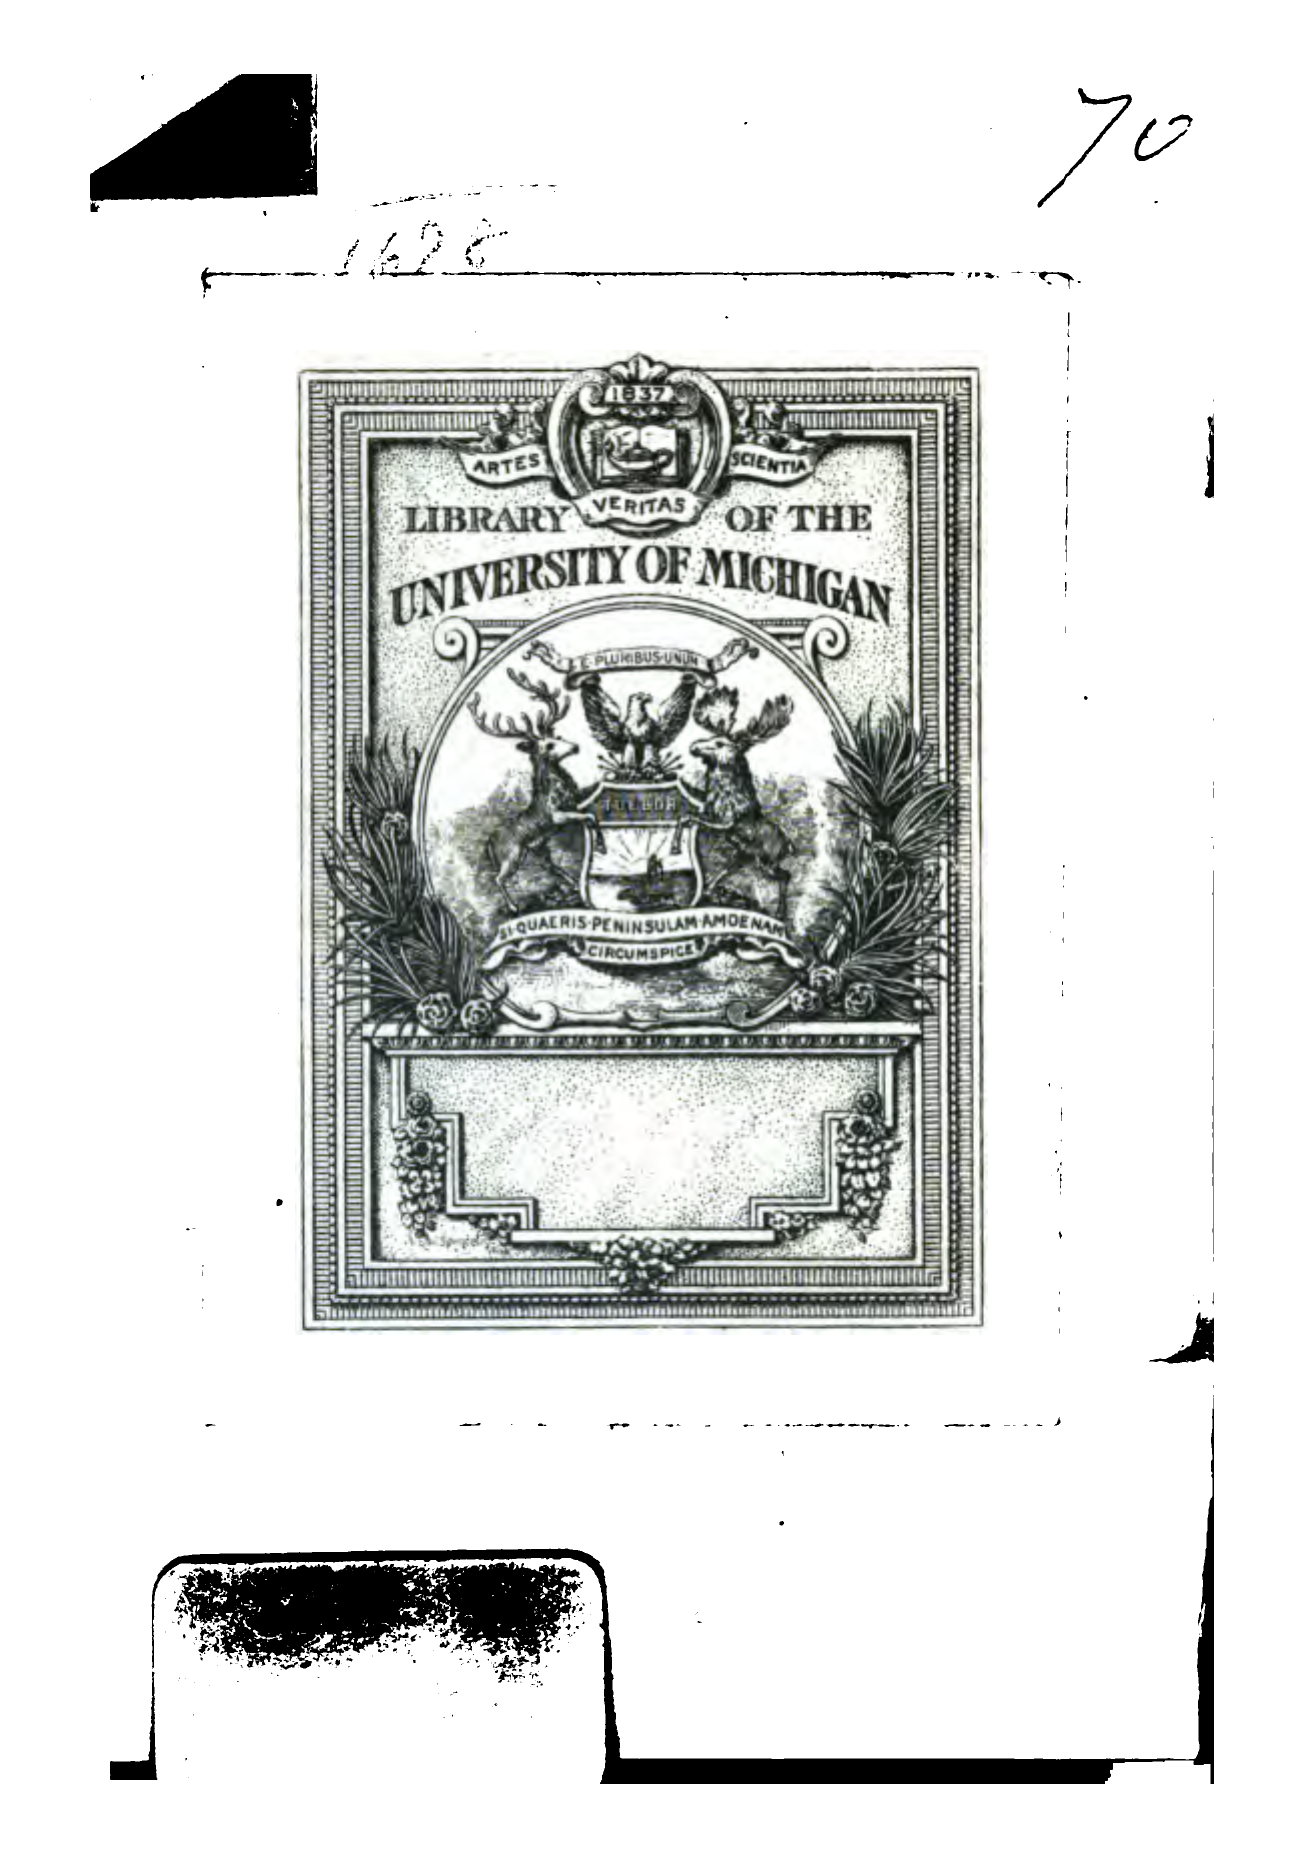 70
1698
1837
ARTES
SCIENTIA
VERITAS
LIBRARY OF THE
UNIVERSITY OF MICHIGAN
E·PLURIBUS·UNUM
TUEBOR
SI·QUAERIS·PENINSULAM·AMOENAM
CIRCUMSPICE